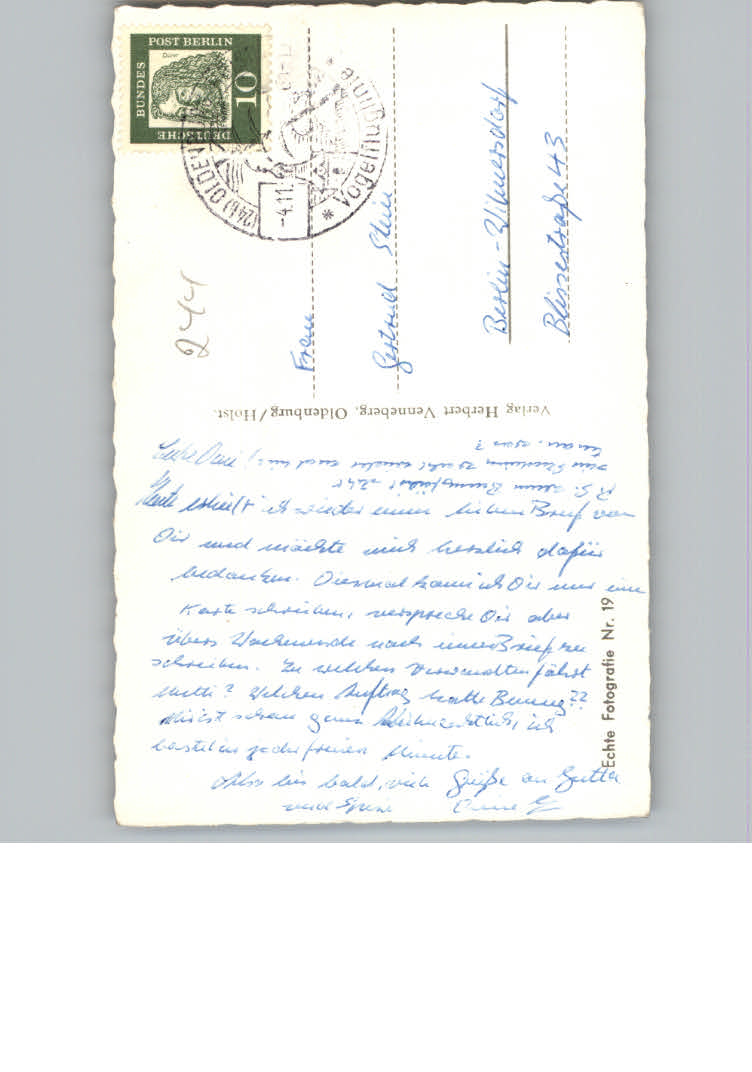 DEUTSCHE
BUNDES
POST BERLIN
Dürer
10
(24b) OLDE
-4.11.
Vogelfluglinie
244
Frau
Gertrud Stein
Berlin-Wilmersdorf
Blissestraße 43
Verlag Herbert Venneberg, Oldenburg/Holst.
Liebe Omi!
Heute erhielt ich wieder einen lieben Brief von
Dir und möchte mich herzlich dafür
bedanken. Diesmal kann ich Dir nur eine
Karte schreiben, verspreche Dir aber
übers Wochenende noch einen Brief zu
schreiben. Zu welchen Verwandten fährst
Mutti? Welchen Auftrag hatte Benny??
schon ganz weihnachtlich, ich
bastel in jeder freien Minute.
Also bis bald, viele Grüße an
und Deine
P.S. wenn
Echte Fotografie Nr. 19